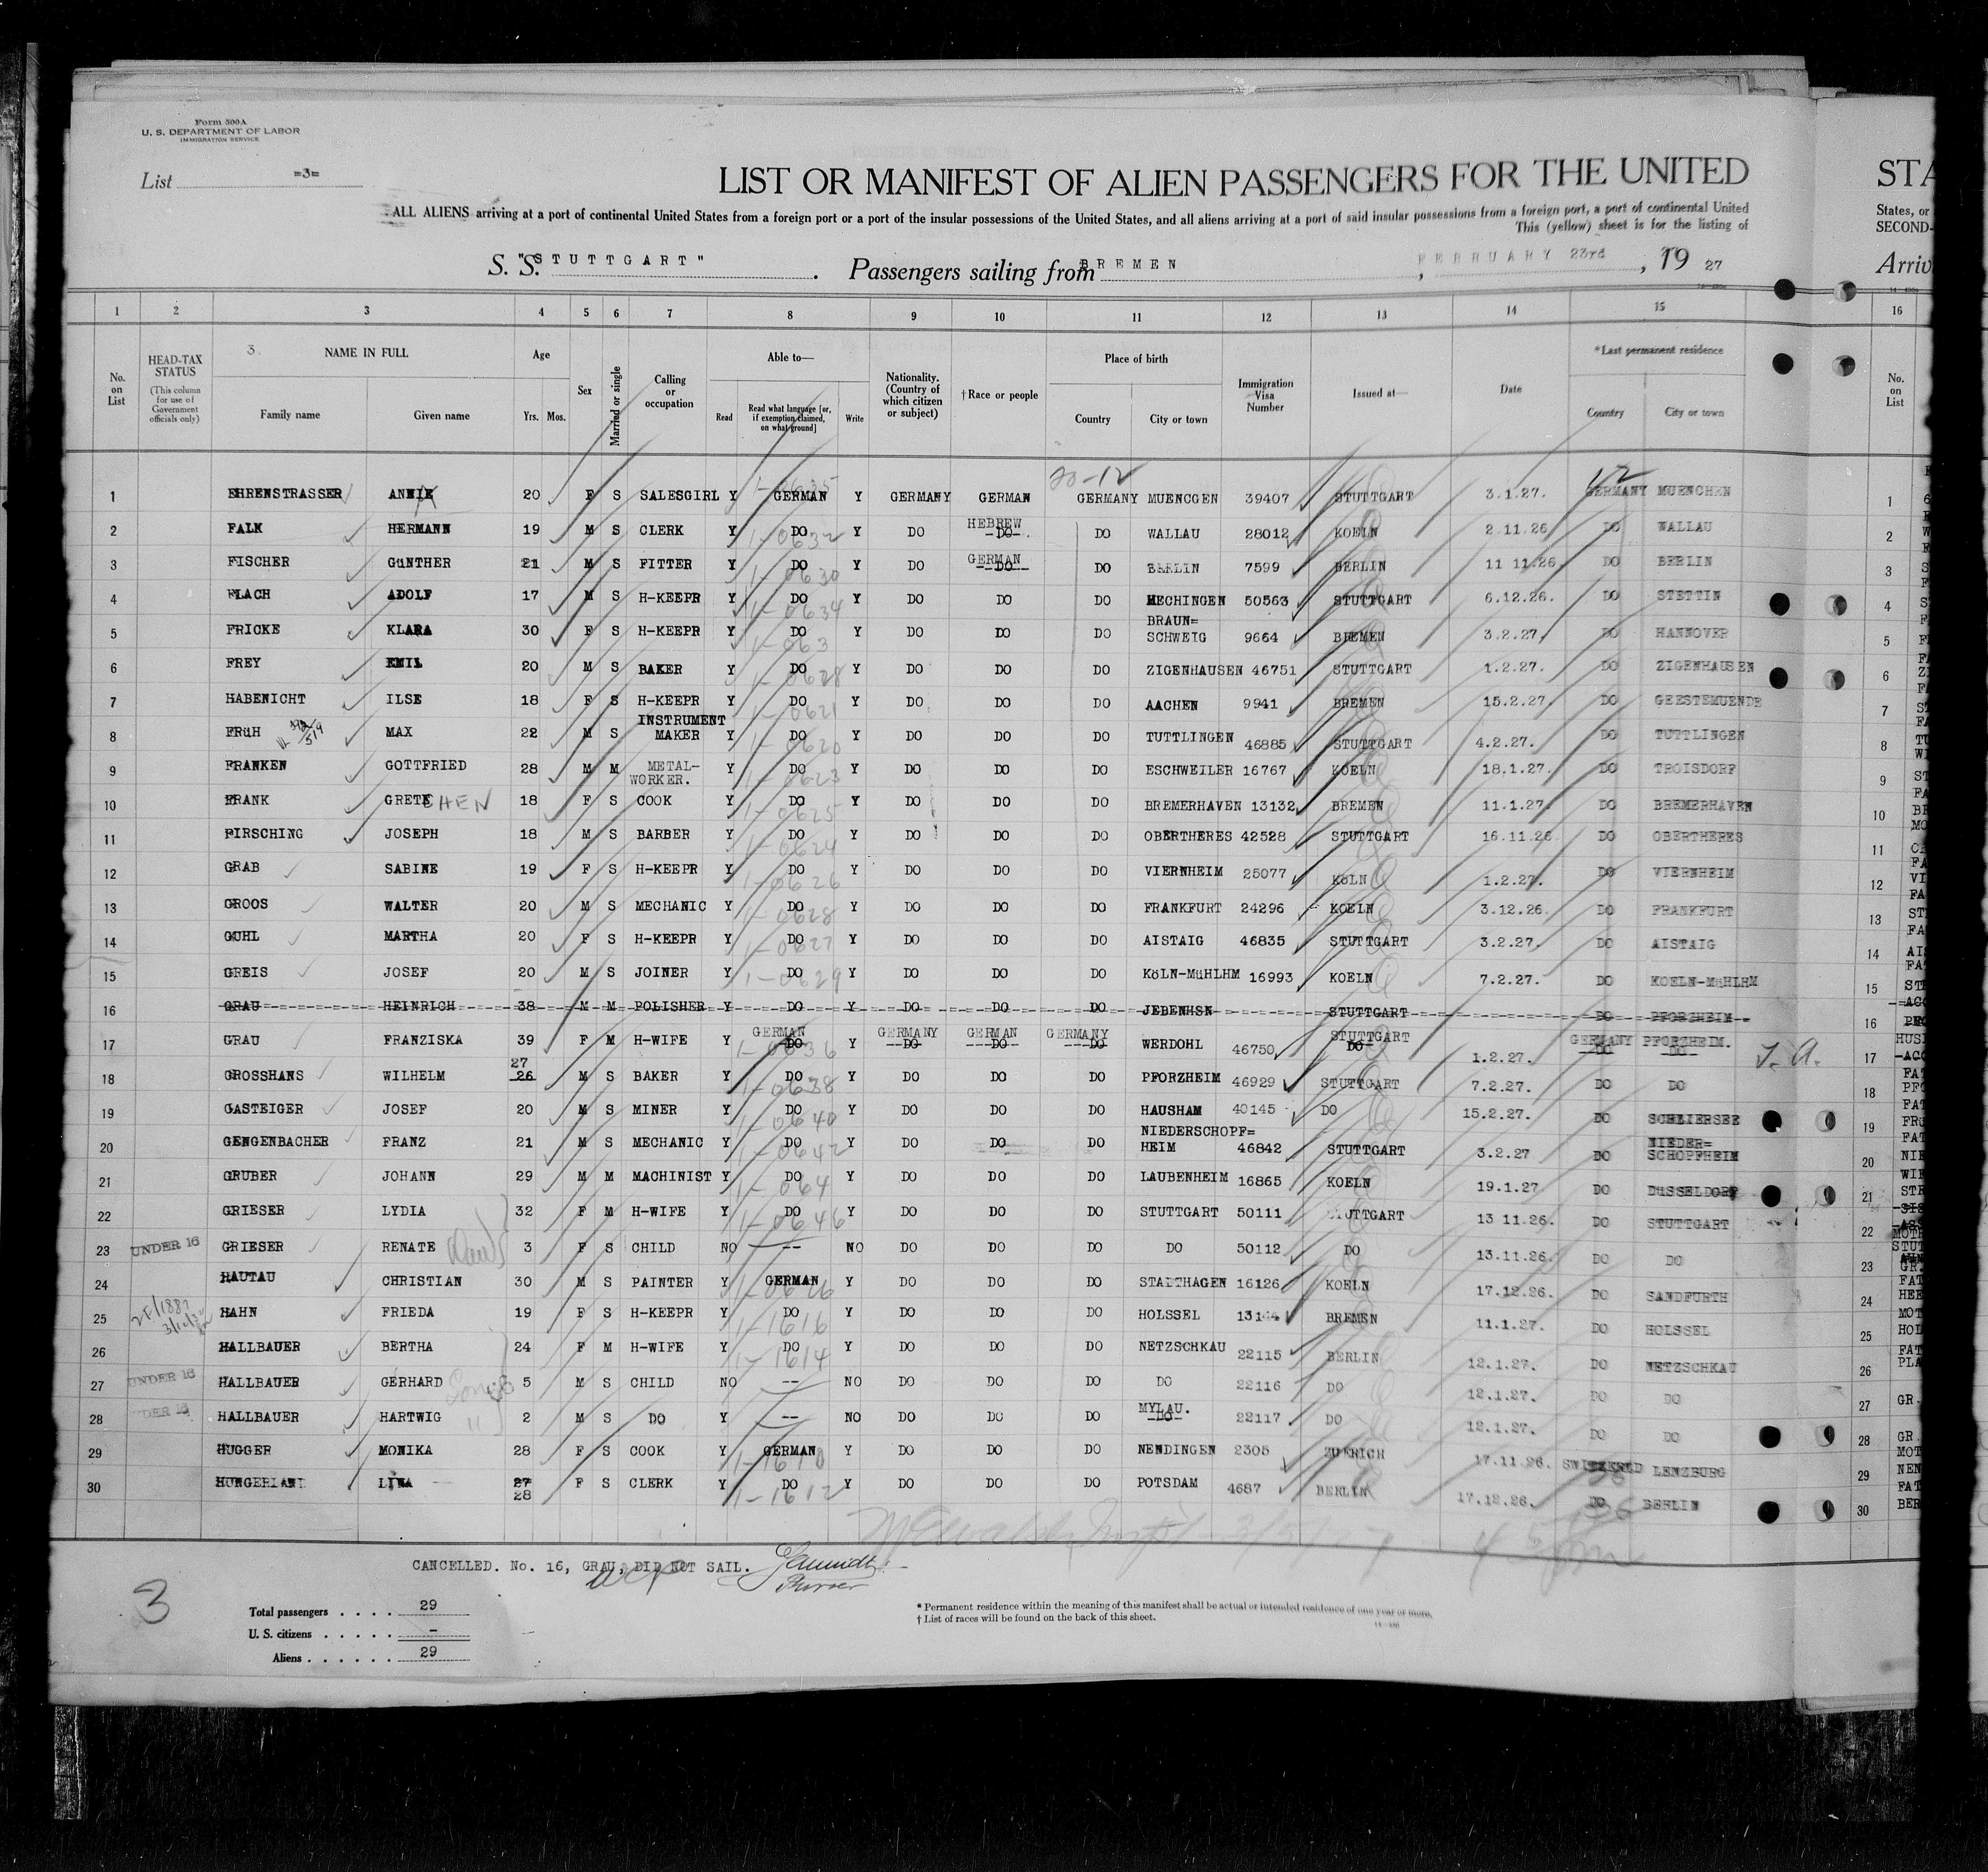 Form 500A
U. S. DEPARTMENT OF LABOR
IMMIGRATION SERVICE
List =3=
LIST OR MANIFEST OF ALIEN PASSENGERS FOR THE UNITED
ALL ALIENS arriving at a port of continental United States from a foreign port or a port of the insular possessions of the United States, and all aliens arriving at a port of said insular possessions from a foreign port, a port of continental United
This (yellow) sheet is for the listing of
S. S. "STUTTGART" . Passengers sailing from BREMEN , FEBRUARY 23rd , 19 27
1 2 3 4 5 6 7 8 9 10 11 12 13 14 15
No. on List
HEAD-TAX STATUS (This column for use of Government officials only)
3. NAME IN FULL
Family name Given name
Age Yrs. Mos.
Sex
Married or single
Calling or occupation
Able to—
Read Read what language [or, if exemption claimed, on what ground] Write
Nationality. (Country of which citizen or subject)
†Race or people
Place of birth
Country City or town
Immigration Visa Number
Issued at—
Date
*Last permanent residence
Country City or town
1 EHRENSTRASSER ANNIE 20 F S SALESGIRL Y GERMAN Y GERMANY GERMAN GERMANY MUENCGEN 39407 STUTTGART 3.1.27. GERMANY MUENCHEN
2 FALK HERMANN 19 M S CLERK Y DO Y DO HEBREW DO DO WALLAU 28012 KOELN 2.11.26 DO WALLAU
3 FISCHER GüNTHER 21 M S FITTER Y DO Y DO GERMAN DO DO BERLIN 7599 BERLIN 11 11.26 DO BERLIN
4 FLACH ADOLF 17 M S H-KEEPR Y DO Y DO DO DO HECHINGEN 50563 STUTTGART 6.12.26. DO STETTIN
5 FRICKE KLARA 30 F S H-KEEPR Y DO Y DO DO DO BRAUN= SCHWEIG 9664 BREMEN 3.2.27. DO HANNOVER
6 FREY EMIL 20 M S BAKER Y DO Y DO DO DO ZIGENHAUSEN 46751 STUTTGART 1.2.27. DO ZIGENHAUSEN
7 HABENICHT ILSE 18 F S H-KEEPR Y DO Y DO DO DO AACHEN 9941 BREMEN 15.2.27. DO GEESTEMUENDE
8 FRüH MAX 22 M S INSTRUMENT MAKER Y DO Y DO DO DO TUTTLINGEN 46885 STUTTGART 4.2.27. DO TUTTLINGEN
9 FRANKEN GOTTFRIED 28 M M METAL- WORKER. Y DO Y DO DO DO ESCHWEILER 16767 KOELN 18.1.27. DO TROISDORF
10 FRANK GRETCHEN 18 F S COOK Y DO Y DO DO DO BREMERHAVEN 13132 BREMEN 11.1.27. DO BREMERHAVEN
11 FIRSCHING JOSEPH 18 M S BARBER Y DO Y DO DO DO OBERTHERES 42528 STUTTGART 16.11.26 DO OBERTHERES
12 GRAB SABINE 19 F S H-KEEPR Y DO Y DO DO DO VIERNHEIM 25077 KöLN 1.2.27. DO VIERNHEIM
13 GROOS WALTER 20 M S MECHANIC Y DO Y DO DO DO FRANKFURT 24296 KOELN 3.12.26. DO FRANKFURT
14 GUHL MARTHA 20 F S H-KEEPR Y DO Y DO DO DO AISTAIG 46835 STUTTGART 3.2.27. DO AISTAIG
15 GREIS JOSEF 20 M S JOINER Y DO Y DO DO DO KöLN-MüHLHM 16993 KOELN 7.2.27. DO KOELN-MüHLHM
16 GRAU HEINRICH 38 M M POLISHER Y DO Y DO DO DO JEBENHSN STUTTGART DO PFORZHEIM
17 GRAU FRANZISKA 39 F M H-WIFE Y GERMAN DO Y GERMANY DO GERMAN DO GERMANY DO WERDOHL 46750 STUTTGART DO 1.2.27. GERMANY DO PFORZHEIM. DO
18 GROSSHANS WILHELM 27 26 M S BAKER Y DO Y DO DO DO PFORZHEIM 46929 STUTTGART 7.2.27. DO DO
19 GASTEIGER JOSEF 20 M S MINER Y DO Y DO DO DO HAUSHAM 40145 DO 15.2.27. DO SCHLIERSEE
20 GENGENBACHER FRANZ 21 M S MECHANIC Y DO Y DO DO DO NIEDERSCHOPF= HEIM 46842 STUTTGART 3.2.27 DO NIEDER= SCHOPFHEIM
21 GRUBER JOHANN 29 M M MACHINIST Y DO Y DO DO DO LAUBENHEIM 16865 KOELN 19.1.27 DO DüSSELDORF
22 GRIESER LYDIA 32 F M H-WIFE Y DO Y DO DO DO STUTTGART 50111 STUTTGART 13 11.26. DO STUTTGART
23 UNDER 16 GRIESER RENATE 3 F S CHILD NO -- NO DO DO DO DO 50112 DO 13.11.26. DO DO
24 HAUTAU CHRISTIAN 30 M S PAINTER Y GERMAN Y DO DO DO STADTHAGEN 16126 KOELN 17.12.26. DO SANDFURTH
25 HAHN FRIEDA 19 F S H-KEEPR Y DO Y DO DO DO HOLSSEL 13144 BREMEN 11.1.27. DO HOLSSEL
26 HALLBAUER BERTHA 24 F M H-WIFE Y DO Y DO DO DO NETZSCHKAU 22115 BERLIN 12.1.27. DO NETZSCHKAU
27 UNDER 16 HALLBAUER GERHARD 5 M S CHILD NO -- NO DO DO DO DO 22116 DO 12.1.27. DO DO
28 UNDER 16 HALLBAUER HARTWIG 2 M S DO Y -- NO DO DO DO MYLAU. DO 22117 DO 12.1.27. DO DO
29 HUGGER MONIKA 28 F S COOK Y GERMAN Y DO DO DO NENDINGEN 2305 ZUERICH 17.11.26. SWITZERLD LENZBURG
30 HUNGERLAND LINA 27 28 F S CLERK Y DO Y DO DO DO POTSDAM 4687 BERLIN 17.12.26. DO BERLIN
CANCELLED. No. 16, GRAU, DID NOT SAIL.
3
Total passengers . . . . 29
U. S. citizens . . . . . –
Aliens . . . . . . 29
* Permanent residence within the meaning of this manifest shall be actual or intended residence of one year or more.
† List of races will be found on the back of this sheet.
STA
States, or
SECOND-
Arriv
16
No. on List